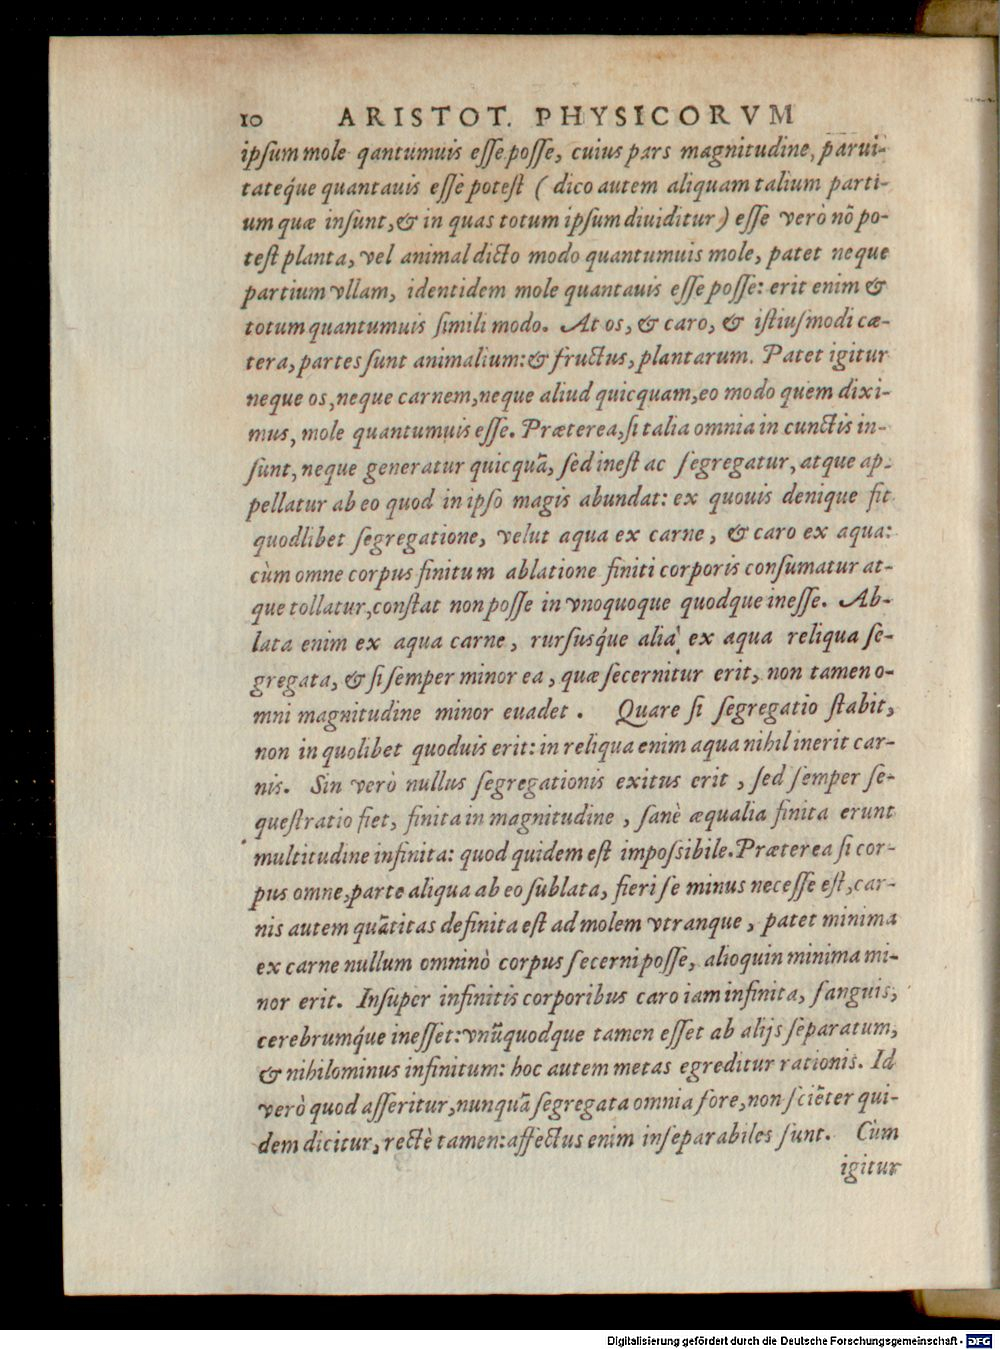 10 ARISTOT. PHYSICORVM
ipſum mole qantumuis eſſe poſſe, cuius pars magnitudine, parui-
tateq́ue quantauis eſſe poteſt ( dico autem aliquam talium parti-
um quæ inſunt, & in quas totum ipſum diuiditur ) eſſe verò nõ po-
teſt planta, vel animal dicto modo quantumuis mole, patet neque
partium vllam, identidem mole quantauis eſſe poſſe: erit enim &
totum quantumuis ſimili modo. At os, & caro, & iſtiuſmodi cæ-
tera, partes ſunt animalium: & fructus, plantarum. Patet igitur
neque os, neque carnem, neque aliud quicquam, eo modo quem dixi-
mus, mole quantumuis eſſe. Præterea, ſi talia omnia in cunctis in-
ſunt, neque generatur quicquã, ſed ineſt ac ſegregatur, atque ap-
pellatur ab eo quod in ipſo magis abundat: ex quouis denique fit
quodlibet ſegregatione, velut aqua ex carne, & caro ex aqua:
cùm omne corpus finitum ablatione finiti corporis conſumatur at-
que tollatur, conſtat non poſſe in vnoquoque quodque ineſſe. Ab-
lata enim ex aqua carne, rurſusq́ue alia, ex aqua reliqua ſe-
gregata, & ſi ſemper minor ea, quæ ſecernitur erit, non tamen o-
mni magnitudine minor euadet. Quare ſi ſegregatio ſtabit,
non in quolibet quoduis erit: in reliqua enim aqua nihil inerit car-
nis. Sin verò nullus ſegregationis exitus erit, ſed ſemper ſe-
queſtratio fiet, finita in magnitudine, ſanè æqualia finita erunt
multitudine infinita: quod quidem eſt impoſsibile. Præterea ſi cor-
pus omne, parte aliqua ab eo ſublata, fieri ſe minus neceſſe eſt, car-
nis autem quãtitas definita eſt ad molem vtranque, patet minima
ex carne nullum omninò corpus ſecerni poſſe, alioquin minima mi-
nor erit. Inſuper infinitis corporibus caro iam infinita, ſanguis,
cerebrumq́ue ineſſet: vnũquodque tamen eſſet ab alijs ſeparatum,
& nihilominus infinitum: hoc autem metas egreditur rationis. Id
verò quod aſſeritur, nunquã ſegregata omnia fore, non ſciẽter qui-
dem dicitur, rectè tamen: affectus enim inſeparabiles ſunt. Cùm
igitur
Digitalisierung gefördert durch die Deutsche Forschungsgemeinschaft - DFG